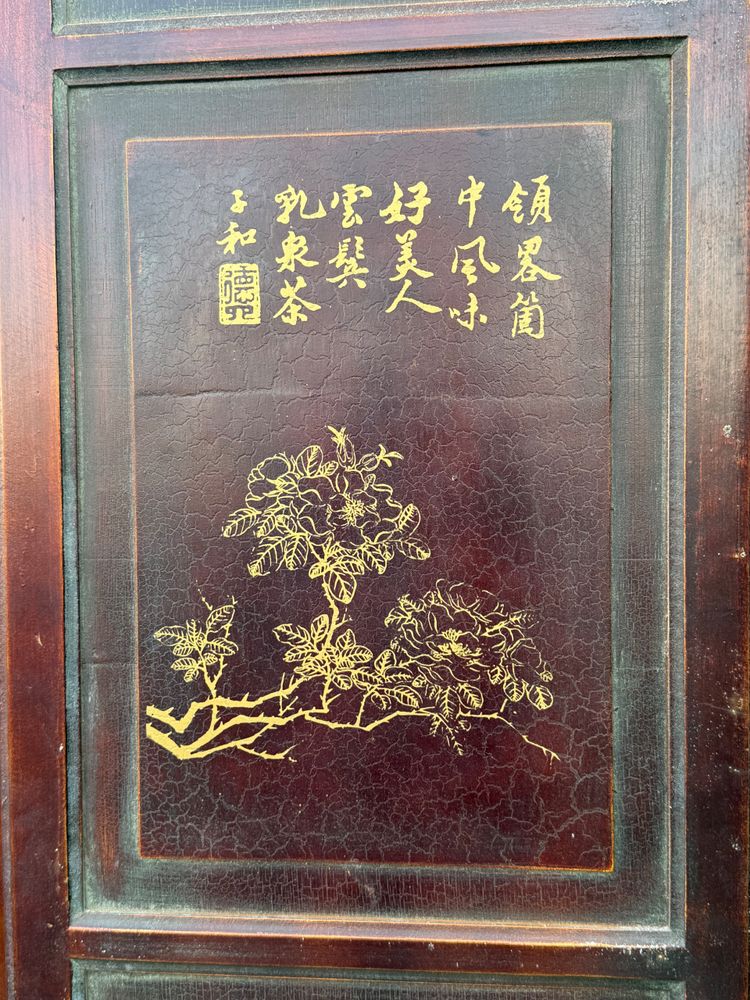 領畧箇
中風味
好美人
雲鬓
乳泉茶
子和